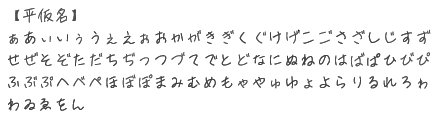 【平仮名】
ぁあぃいぅうぇえぉおかがきぎくぐけげこごさざしじすず
せぜそぞただちぢっつづてでとどなにぬねのはばぱひびぴ
ふぶぷへべぺほぼぽまみむめもゃやゅゆょよらりるれろゎ
わゐゑをん